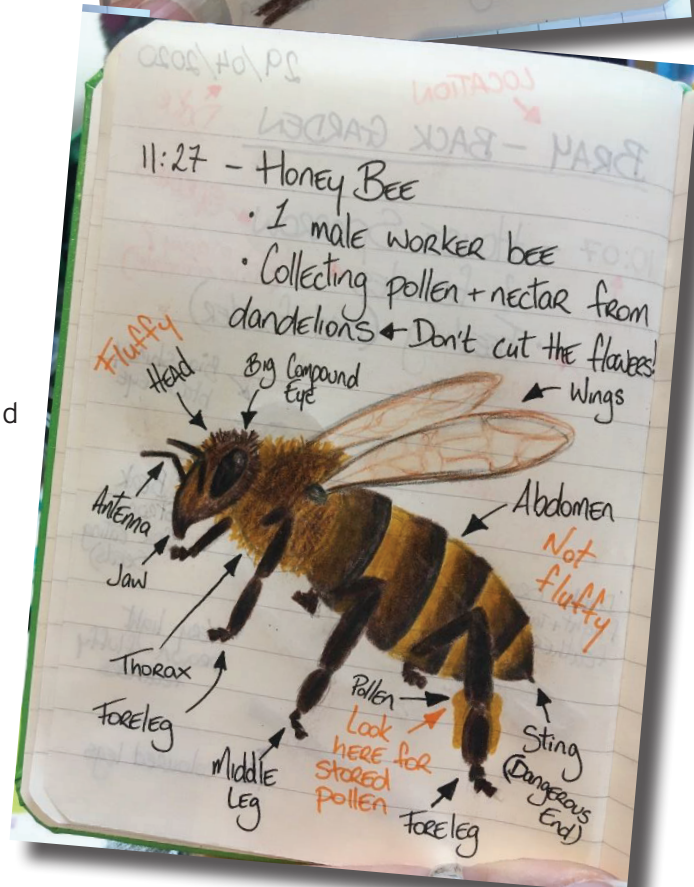 d
29/04/2020
LOCATION
BRAY - BACK GARDEN
11:27 - Honey Bee
• 1 male worker bee
• Collecting pollen + nectar from
dandelions ← Don't cut the flowers!
Fluffy
Head
Big Compound
Eye
Wings
Antenna
Jaw
Abdomen
Not
fluffy
Thorax
Foreleg
Middle
Leg
Pollen
Look
here for
stored
pollen
Foreleg
Sting
(Dangerous
End)
10:07